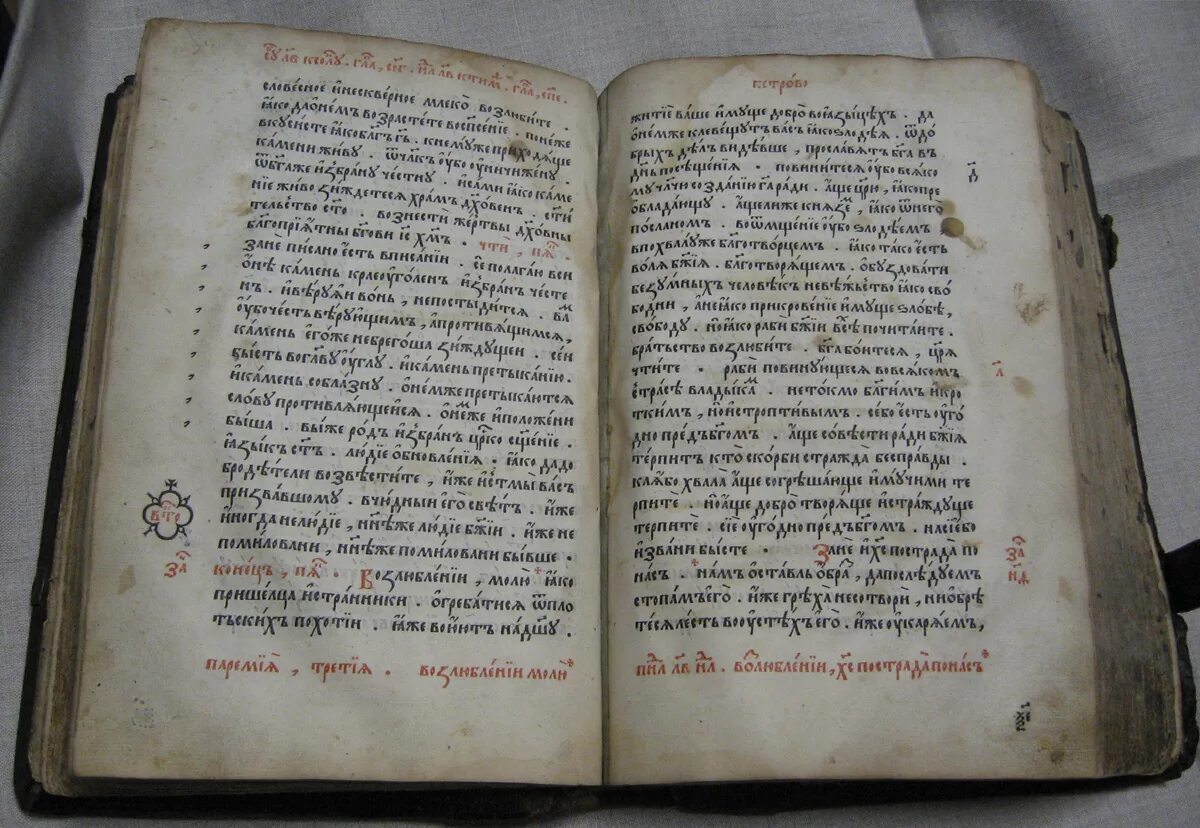 словесное инескверное млеко возлюбите .
ꙗко даѻнемъ возрастете воспсение . понеже
вкусисте ꙗкоблгъ гь . кнемуже приходѧще
камени живу . ѿчлкъ оубо оуничижену .
ѿбгаже избрану честну . исами ꙗко каме
ние живо зиждетеся храмъ дховенъ . стї
тельство сто . вознести жертвы дховны
благопрїѧтны бгови іс хмъ . чти
зане писано есть вписанїи . се полагаю вси
ѻне камень краеоуголенъ избранъ честе
нъ . ивѣруѧи вонь , непостыдитсѧ . ва
оубочесть вѣрующимъ , апротивѧщимсѧ ,
камень егоже небрегоша зиждущеи . сеи
бысть воглаву оуглу . икамень претыканїю .
икамень соблазну . ѻнемже претыкаются
слову противлѧющейсѧ . ѻнеже иположени
быша . выже родъ избранъ црко сщенїе .
ꙗзыкъ стъ . людїе ѻбновленїѧ . ꙗко дадо
бродѣтели возвѣстите , иже истмы васъ
призвавшому . вчюдныи его свѣтъ . иже
иногда нелюдїе , ннѣже людїе бжїи . иже не
помиловани , ннѣже помиловани бывше .
конецъ , Возлюбленїи , молю ꙗко
пришелца истранники . ѻгребатисѧ ѿпло
тьскихъ похотїи . ꙗже воюютъ надшу .
за
паремиѧ , третїѧ . возлюбленїи молю
петрово
житїе ваше имуще добро воꙗзыцѣхъ . да
ѻнемже клевещутъ васъ ꙗко ѕлодѣѧ . ѿдо
брыхъ дѣлъ видѣвше , прославѧтъ бга въ
днь посѣщенїѧ . повинитесѧ оубо всѧко
му члчю созданїю гаради . аще црю , ꙗкопре
ѻбладающу . ащелиже кнѧзе , ꙗко ѿнего
посланомъ . воѿмщенїе оубо ѕлодѣемъ
впохвалуже благотворцемъ . ꙗко тако есть
волѧ бжїѧ . благотворѧщемъ . ѻбуздовати
безумныхъ человѣкъ невѣжьство ꙗко сво
бодни , анеꙗко прикровенїе имуще ѕлобѣ ,
свободу . ноꙗко раби бжїи всѣ почитаите .
братьство возлюбите . бга боитесѧ , црѧ
чтите . раби повинующесѧ вовсѧкомъ
страсѣ владыкам . нетокмо благимъ икро
ткимъ , ноистроптивымъ . себо есть оуго
дно предъбгомъ . аще совѣсти ради бжїѧ
терпитъ кто скорби стражда бесправды .
каѧбо хвала аще согрѣшающе имучими те
рпите . ноаще добро творѧще истраждуще
терпите . сїе оугодно предъбгомъ . насїебо
извани бысте . Зане ихс пострада по
насъ . намъ ѻставль ѻбра , дапослѣдуемъ
стопамъ его . иже грѣха несотвори , ниѻбрѣ
тесѧ лесть вооустѣхъ его . иже оукарѧемъ ,
за
возлюбленїи , хс пострада понасъ